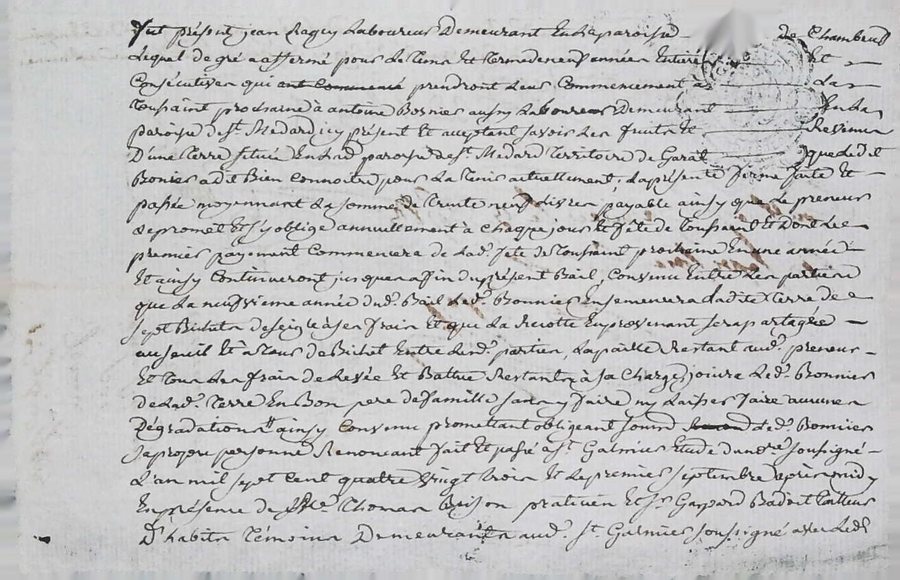 fut présent jean Ragey Laboureur Demeurant En La paroisse de Chambeuf
Lequel de gré a affermé pour le tems et terme de neuf années Entière Et
Consécutives qui ont commencé prendront Leur Commencement a La
Toussaint prochaine à antoine Bonier aussy Laboureur Demeurant En La
paroisse de St. Medard icy présent Et aceptant savoir Les fruits Et Revenus
D'une Terre située En Lad. paroisse de St. Medard Territoire de Garat que ledit
Bonier a dit Bien Connoitre pour La tenir actuellement, La présente ferme faite Et
passée moyennant La somme de Trente neuf Livres payable ainsy que Le preneur
Se promet Et s'y oblige annuellement à chaque jour Et fête de Toussaint Et Dont Le
premier payement Commencera de Lad. fete de Toussaint prochaine En une année
Et ainsy Continueront jusques a fin du présent Bail, Convenu Entre Les parties
que La neufvieme année dud. Bail Led. Bonnier Ensemencera Ladite terre de
sept Bichets de seigle à ses frais Et que La Recolte En provenant sera partagée
au seuil Et à Tour de Bichet Entre Lesd. parties, La paille Restant aud. preneur
Et Tous Les frais de Levée Et Battue Restants à sa Charge, jouira Led. Bonnier
de Lad. Terre En Bon pere de famille sans y faire ny Laisser faire aucunes
Dégradations ainsy Convenu promettant obligeant soumd. Led. Bonnier
sa propre personne Renonceant fait Et passé a St. Galmier Etude du nore. soussigné
L'an mil sept Cent quatre vingt trois Et Le premier septembre après midy
En présence de Thomas Buison praticien Et Sr. Gaspard Badoit Tailleur
D'habits Témoins Demeurants aud. St. Galmier soussigné avec Led.